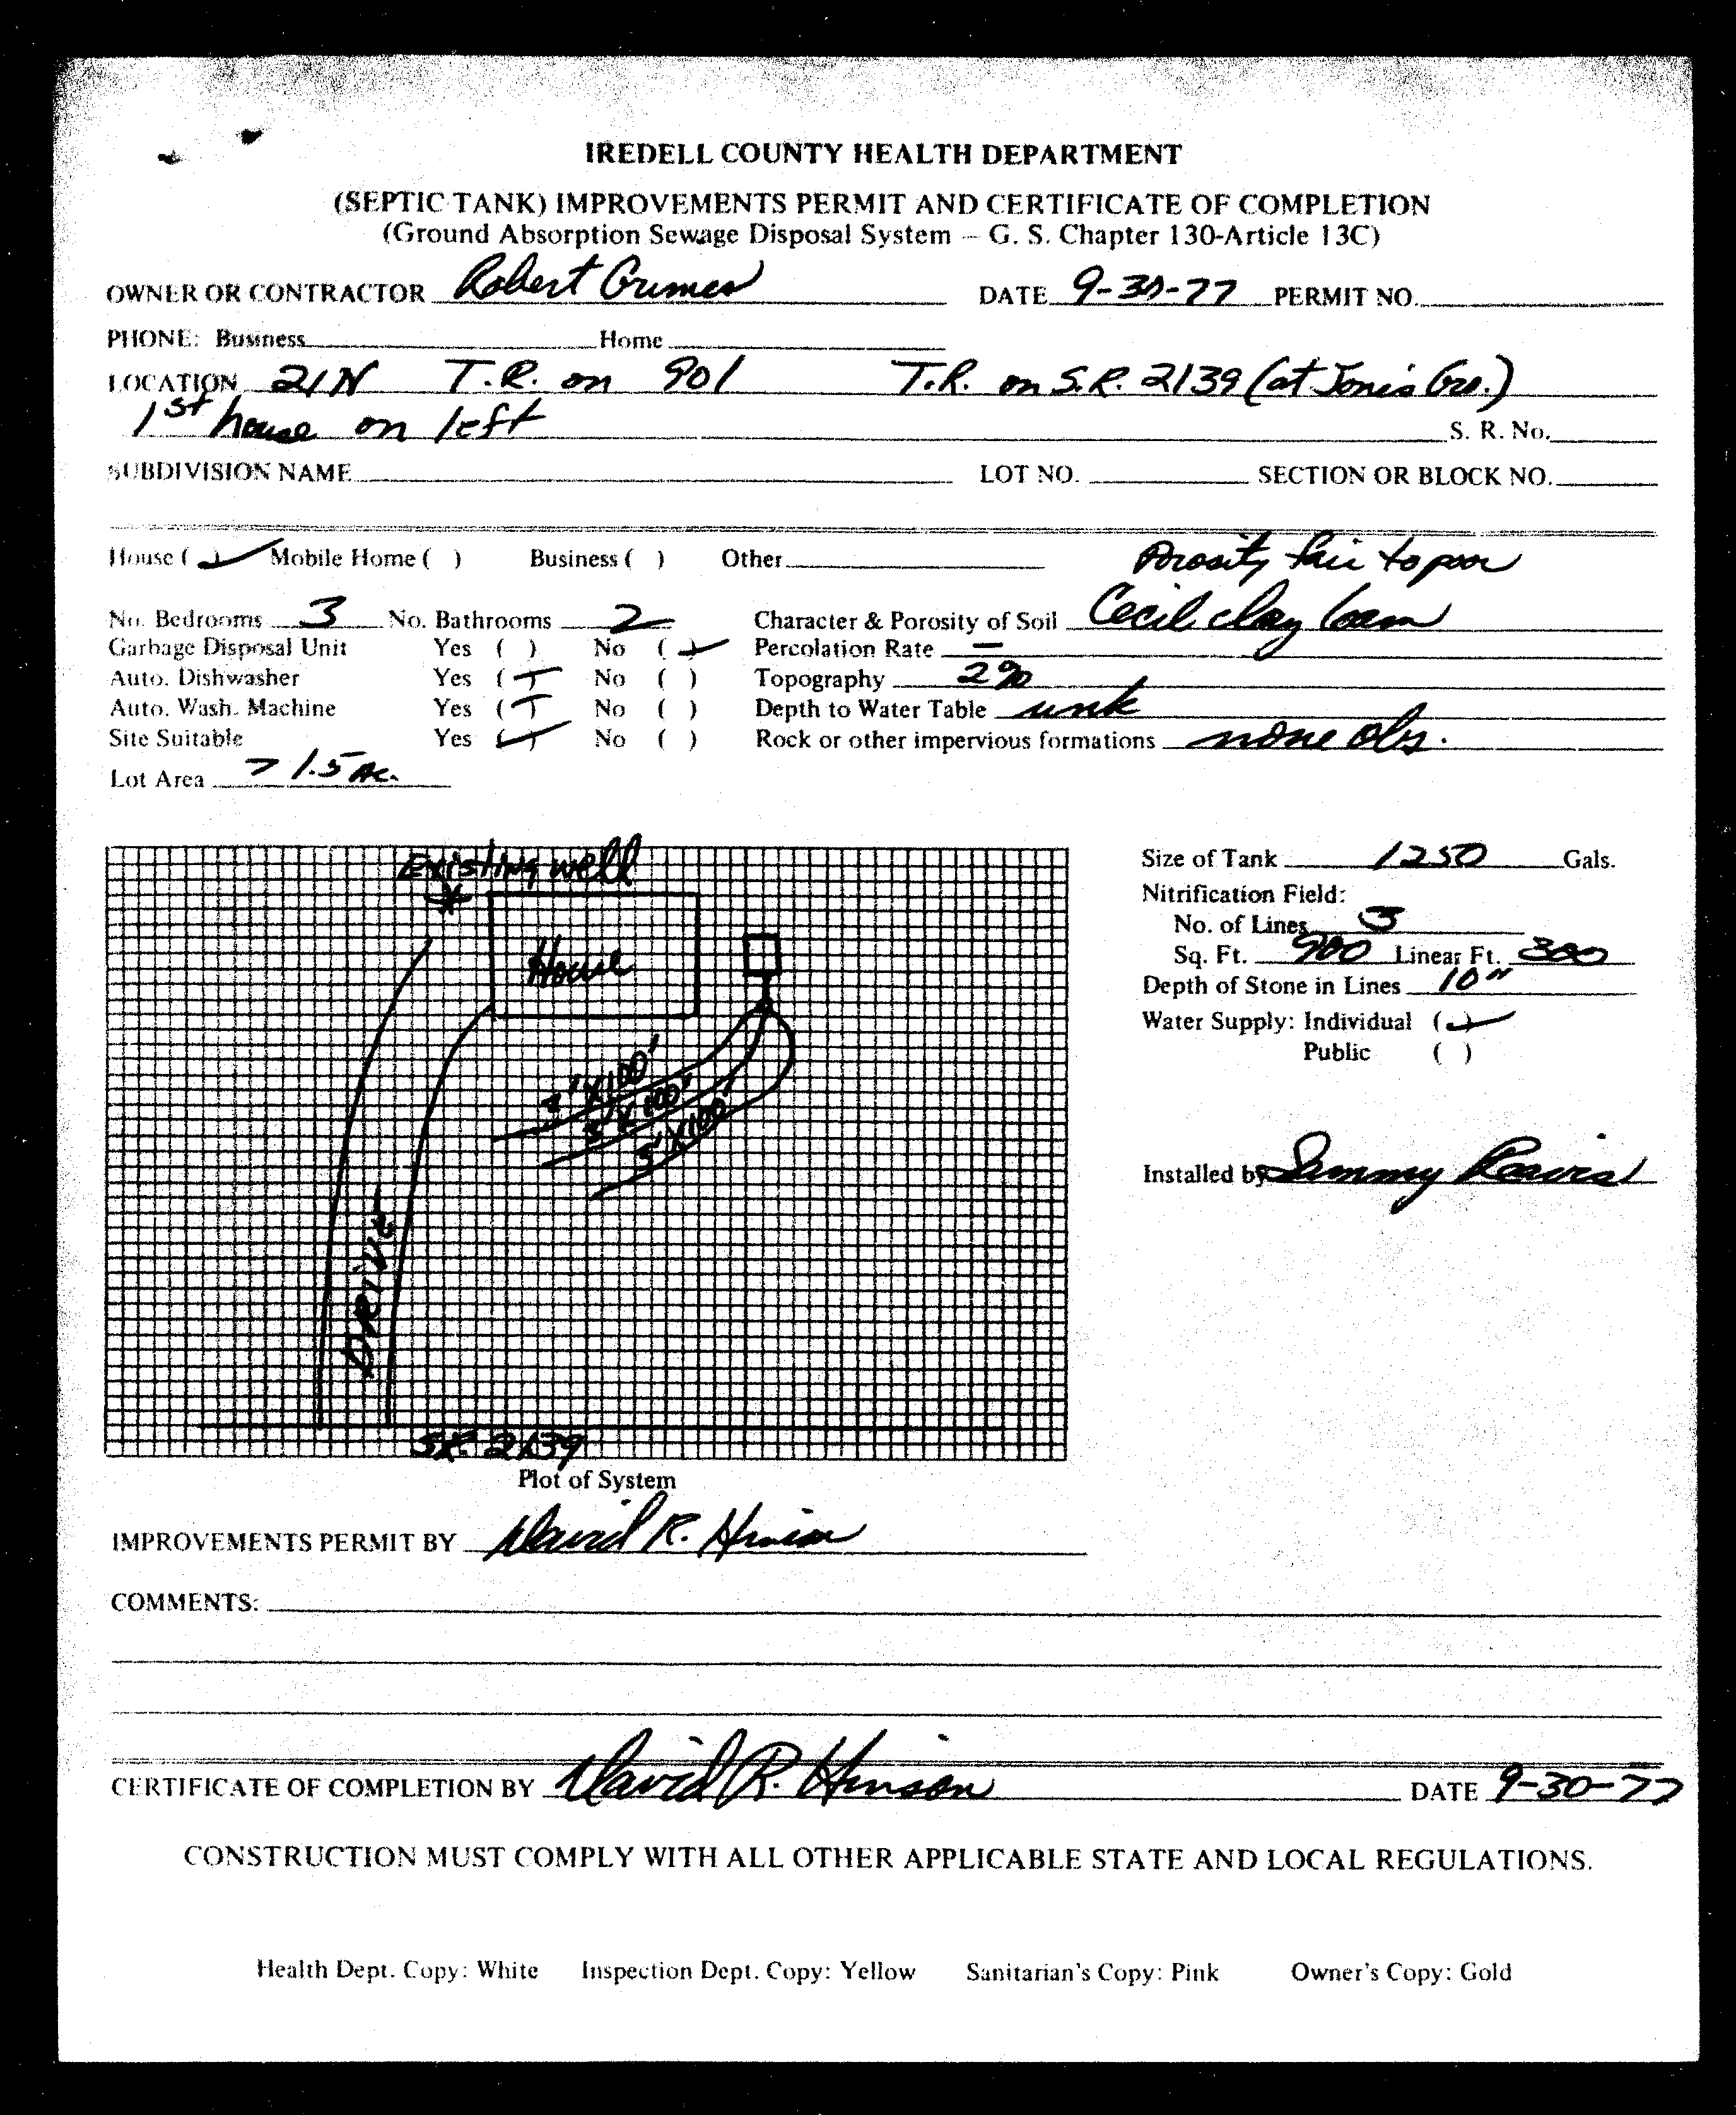 IREDELL COUNTY HEALTH DEPARTMENT
(SEPTIC TANK) IMPROVEMENTS PERMIT AND CERTIFICATE OF COMPLETION
(Ground Absorption Sewage Disposal System – G. S. Chapter 130-Article 13C)
OWNER OR CONTRACTOR Robert Grimes DATE 9-30-77 PERMIT NO.
PHONE: Business Home
LOCATION 21N T.R. on 901 T.R. on S.R. 2139 (at Jones Gro.)
1st house on left S. R. No.
SUBDIVISION NAME LOT NO. SECTION OR BLOCK NO.
House ( ) Mobile Home ( ) Business ( ) Other Porosity fair to poor
No. Bedrooms 3 No. Bathrooms 2 Character & Porosity of Soil Cecil clay loam
Garbage Disposal Unit Yes ( ) No ( ) Percolation Rate —
Auto. Dishwasher Yes ( ) No ( ) Topography 2%
Auto. Wash. Machine Yes ( ) No ( ) Depth to Water Table unk
Site Suitable Yes ( ) No ( ) Rock or other impervious formations none obs.
Lot Area > 1.5 Ac.
Existing well
House
3' X 100'
3' X 100'
3' X 100'
Drive
S.R. 2139
Plot of System
Size of Tank 1250 Gals.
Nitrification Field:
No. of Lines 3
Sq. Ft. 900 Linear Ft. 300
Depth of Stone in Lines 10"
Water Supply: Individual ( )
Public ( )
Installed by Sammy Reavis
IMPROVEMENTS PERMIT BY David R. Hinson
COMMENTS:
CERTIFICATE OF COMPLETION BY David R. Hinson DATE 9-30-77
CONSTRUCTION MUST COMPLY WITH ALL OTHER APPLICABLE STATE AND LOCAL REGULATIONS.
Health Dept. Copy: White Inspection Dept. Copy: Yellow Sanitarian's Copy: Pink Owner's Copy: Gold